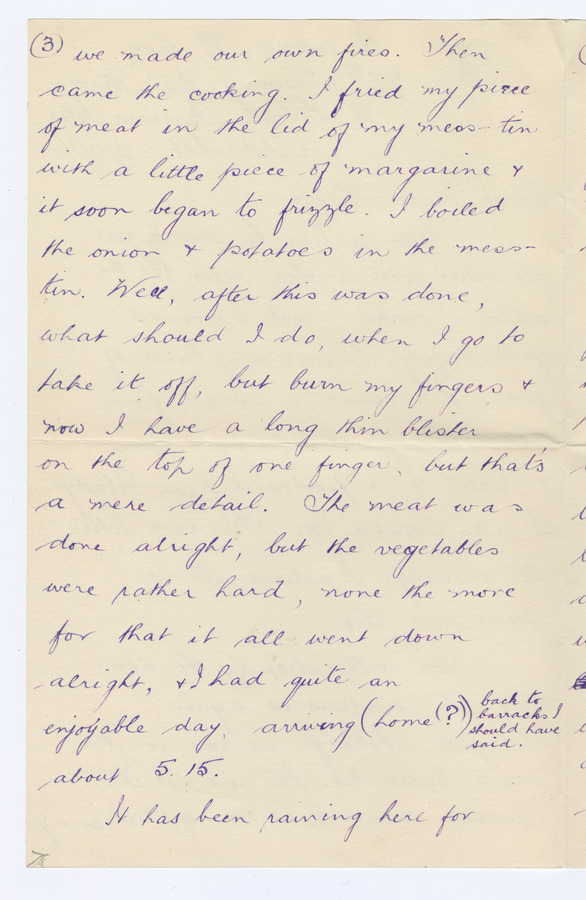 (3) we made our own fires. Then
came the cooking. I fried my piece
of meat in the lid of my mess-tin
with a little piece of margarine &
it soon began to frizzle. I boiled
the onion & potatoes in the mess-
tin. Well, after this was done,
what should I do, when I go to
take it off, but burn my fingers &
now I have a long thin blister
on the top of one finger, but that's
a mere detail. The meat was
done alright, but the vegetables
were rather hard, none the more
for that it all went down
alright, & I had quite an
enjoyable day, arriving (home (?)) back to
barracks I
should have
said.
about 5.15.
It has been raining here for